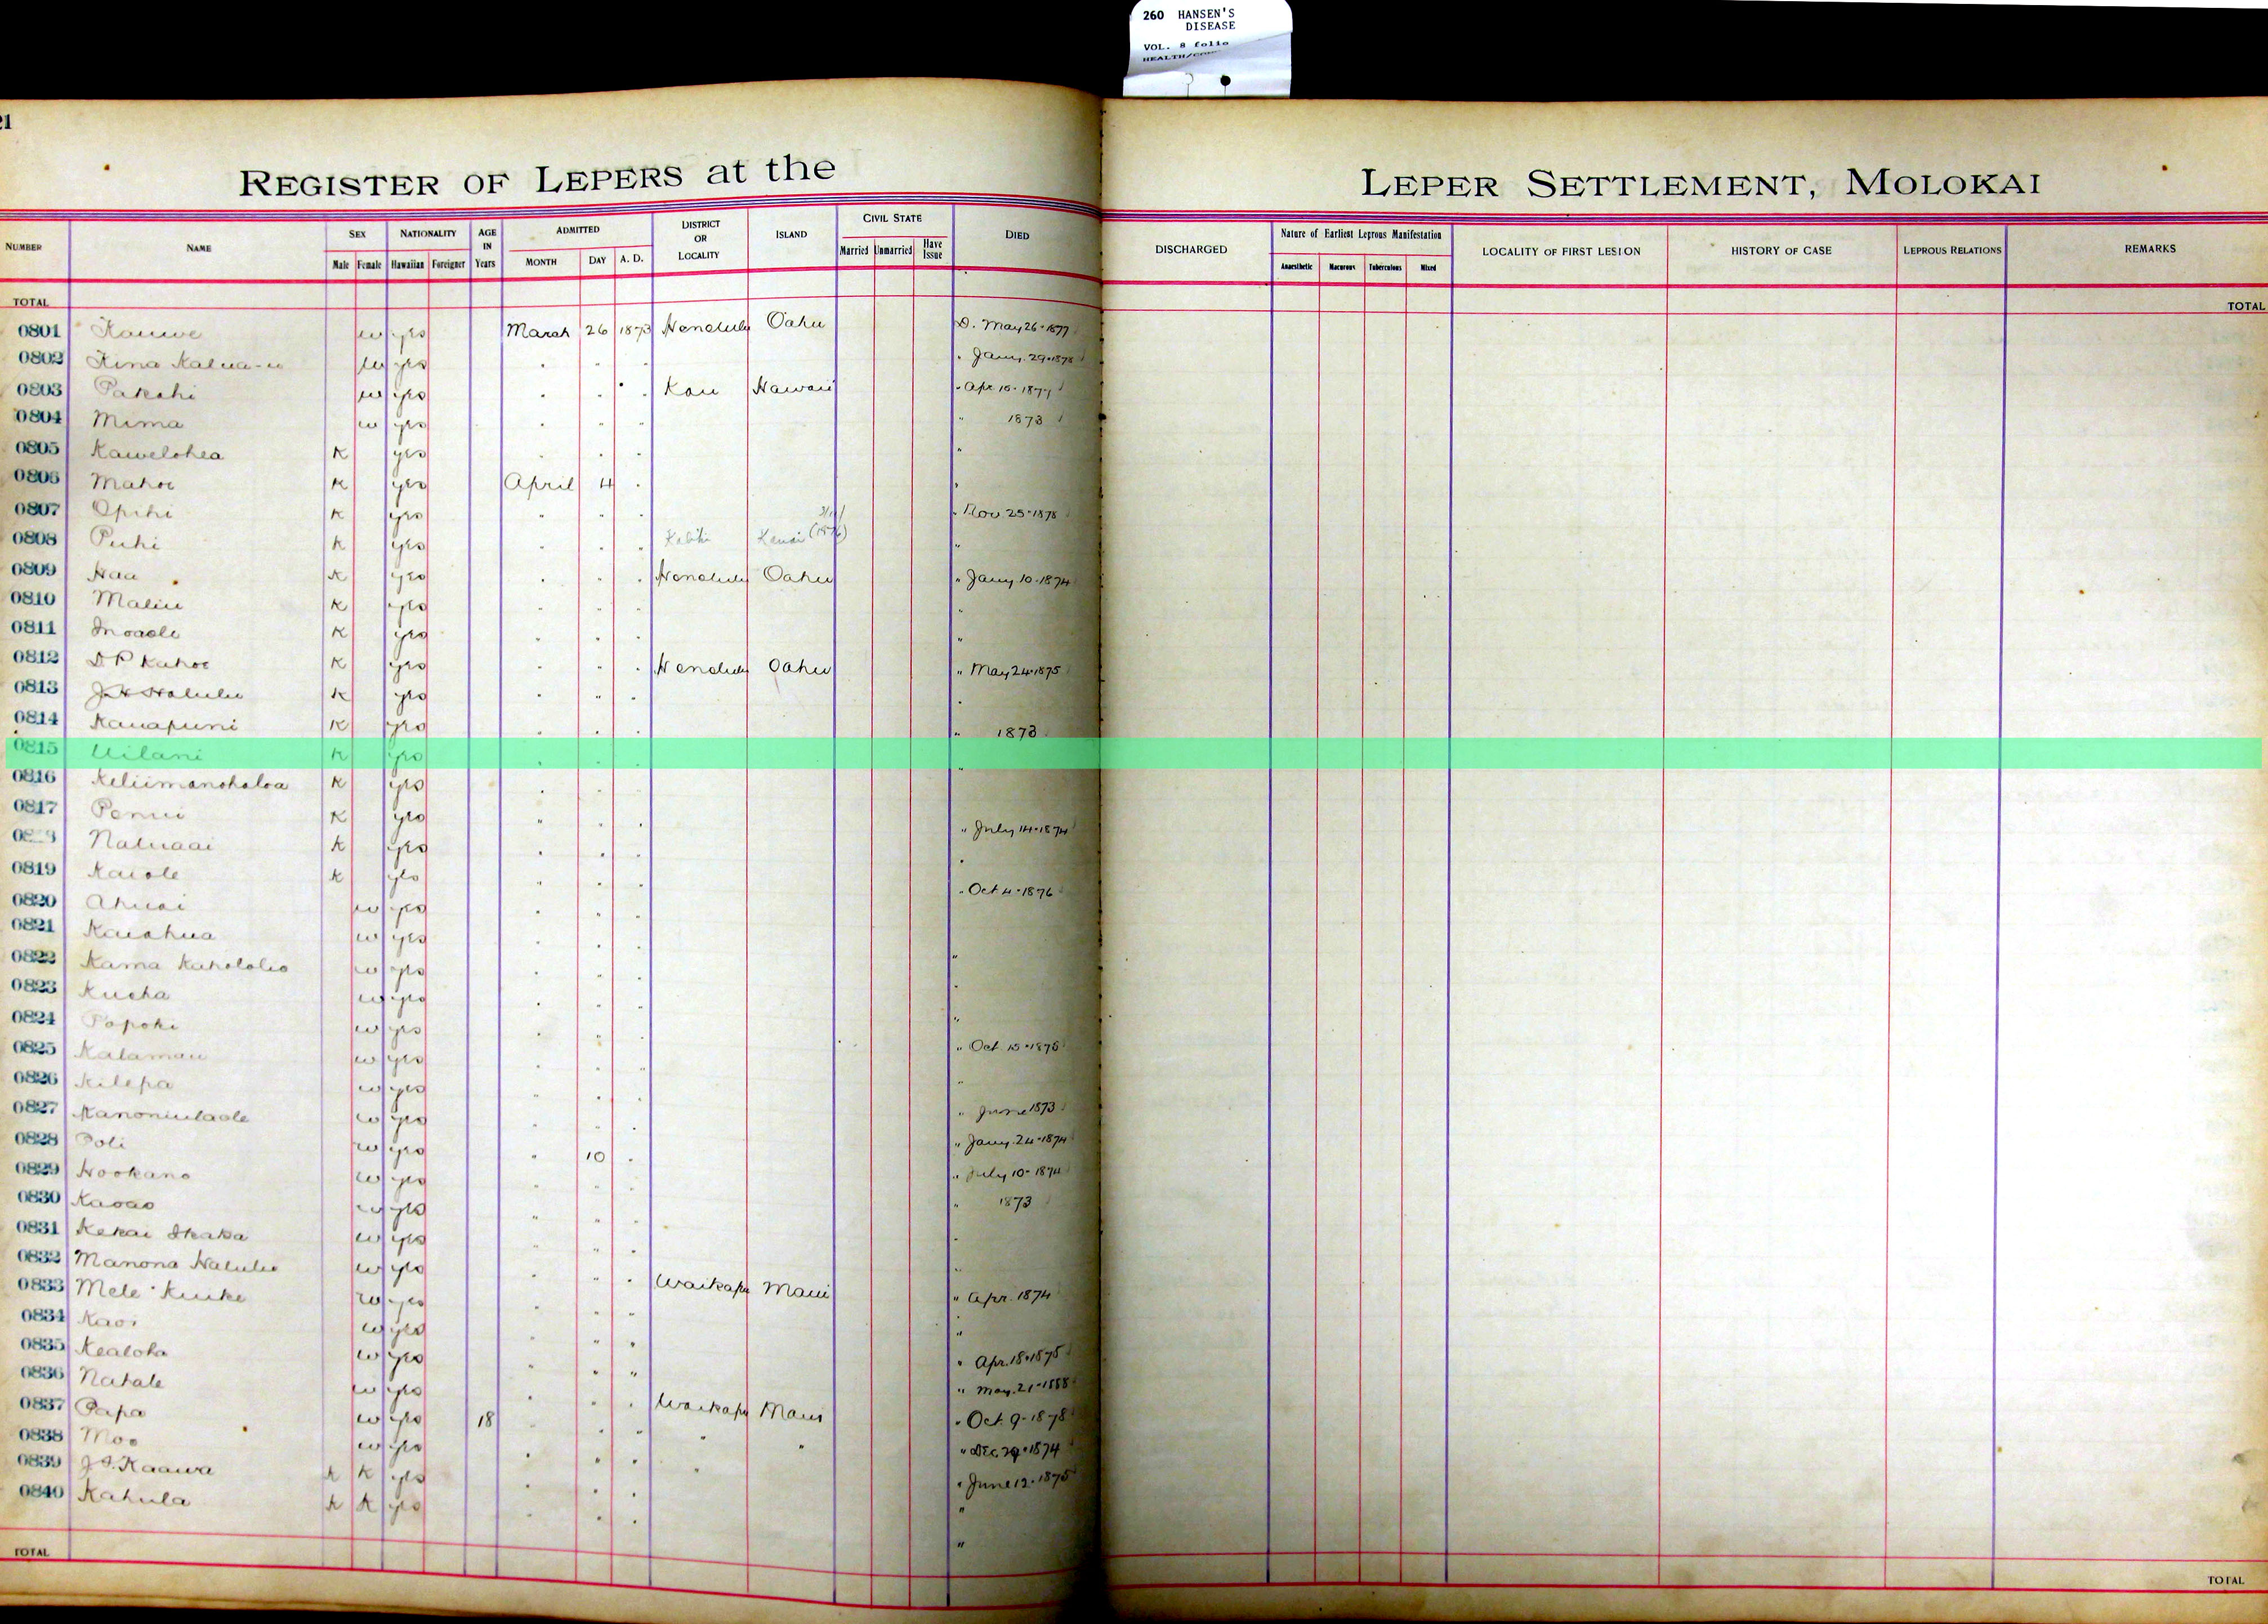 260 HANSEN'S
DISEASE
VOL. 8 folio
21
REGISTER OF LEPERS at the LEPER SETTLEMENT, MOLOKAI
NUMBER NAME SEX Male Female NATIONALITY Hawaiian Foreigner AGE IN Years ADMITTED MONTH DAY A. D. DISTRICT OR LOCALITY ISLAND CIVIL STATE Married Unmarried Have Issue DIED DISCHARGED Nature of Earliest Leprous Manifestation Anaesthetic Macurous Tuberculous Mixed LOCALITY OF FIRST LESION HISTORY OF CASE LEPROUS RELATIONS REMARKS
TOTAL TOTAL
0801 Kauwe w yes March 26 1873 Honolulu Oahu D. May 26-1877
0802 Kina Kalua-u w yes " " " " Jany. 29-1878
0803 Pakahi w yes " " " Kau Hawaii " Apr 10-1877
0804 Mima w yes " " " " 1873
0805 Kawelohea K yes " " " "
0806 Mahoe K yes April 4 " "
0807 Opihi K yes " " " " Nov 25-1878
0808 Puhi K yes " " " Kauai "
0809 Haa K yes " " " Honolulu Oahu " Jany 10-1874
0810 Maliu K yes " " " "
0811 Inoaole K yes " " " "
0812 D P Kahoe K yes " " " Honolulu Oahu " May 24-1875
0813 J H Halulu K yes " " " "
0814 Kauapuni K yes " " " " 1873
0815 Uilani K yes " " " "
0816 Keliimanohaloa K yes " " "
0817 Penui K yes " " " " July 14-1874
Naluaai K yes " " " "
0819 Kaiole K yes " " " " Oct 4-1876
0820 Ahuai w yes " " "
0821 Kaiahua w yes " " " "
0822 Kama Kahololio w yes " " " "
0823 Kueha w yes " " " "
0824 Popoki w yes " " " " Oct. 15-1878
0825 Kalamau w yes " " " "
0826 Kilepa w yes " " " " June 1873
0827 Kanoniulaole w yes " " " " Jany. 24-1874
0828 Poli w yes " 10 " " July 10-1874
0829 Hookano w yes " " " " 1873
0830 Kaoao w yes " " " "
0831 Kekai Ikaka w yes " " " "
0832 Manona Halulu w yes " " " Waikapu Maui " Apr. 1874
0833 Mele Kuike w yes " " " "
0834 Kaoi w yes " " " " Apr. 18-1875
0835 Kealoha w yes " " " " May. 21-1888
0836 Nahale w yes " " " Waikapu Maui " Oct. 9-1878
0837 Papa w yes 18 " " " " " " Dec 29-1874
0838 Moo w yes " " " " " June 12-1875
0839 J. I. Kaawa K K yes " " " "
0840 Kahula K K yes " " " "
TOTAL TOTAL